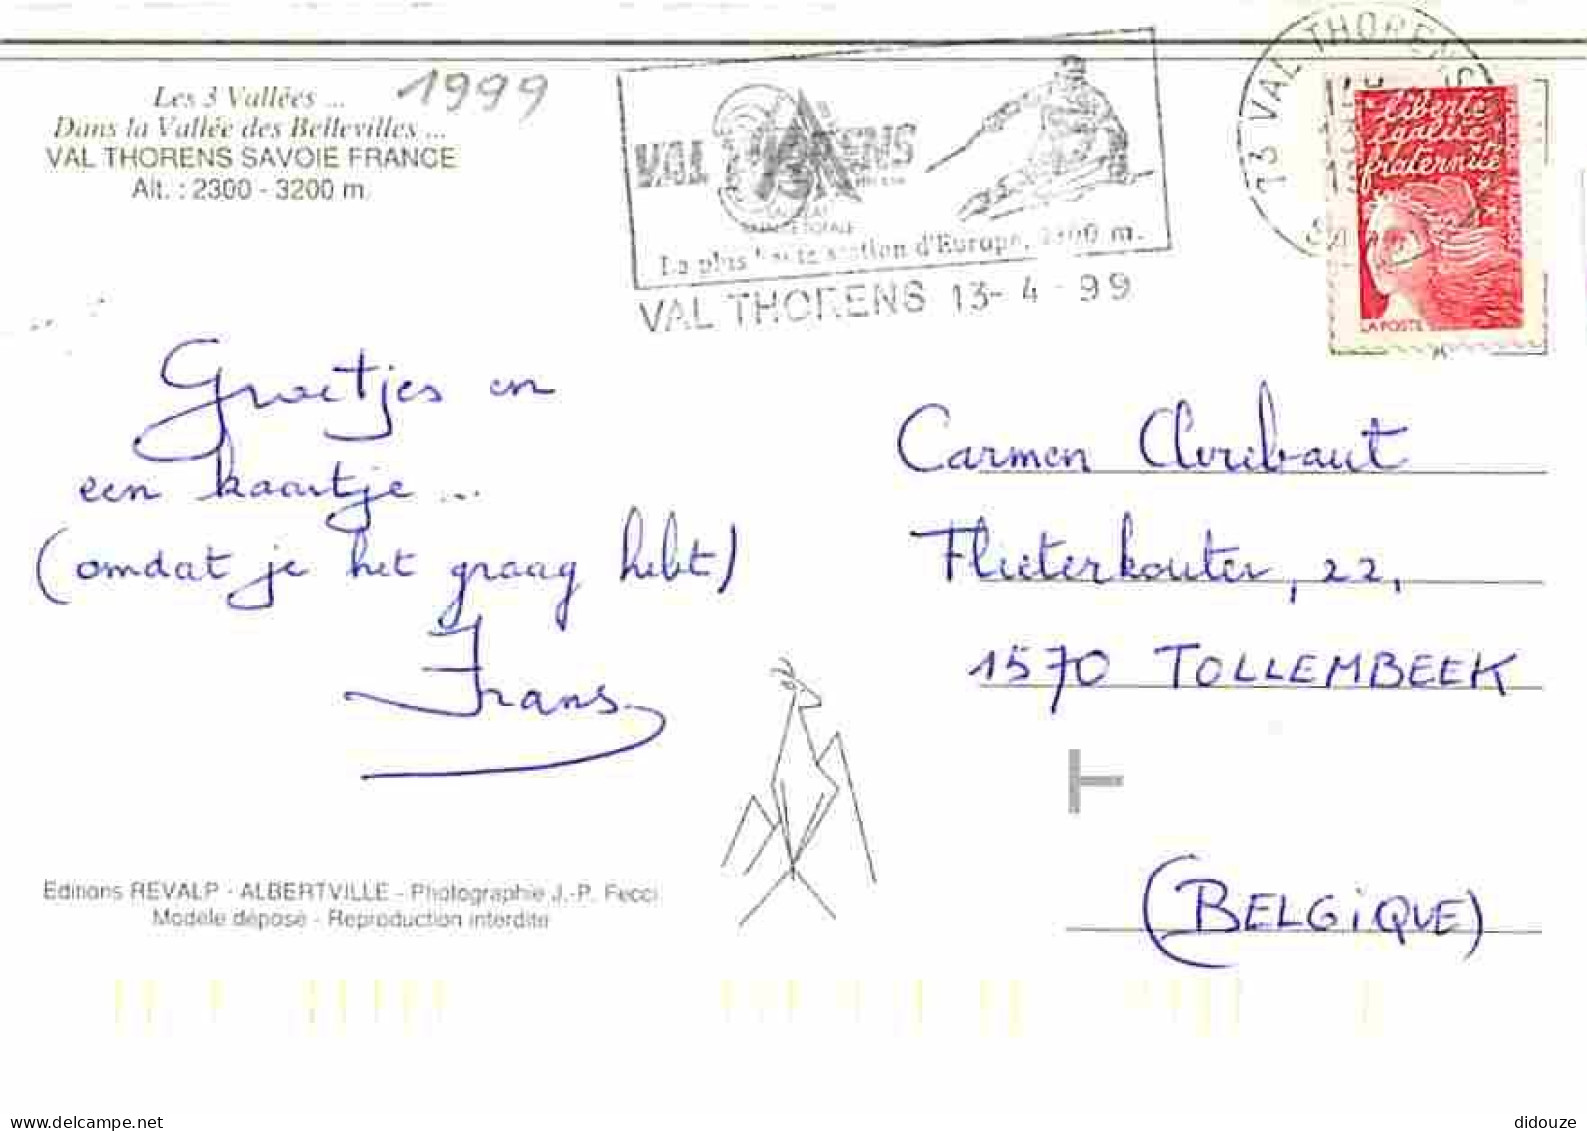 1999
Les 3 Vallées ...
Dans la Vallée des Bellevilles ...
VAL THORENS SAVOIE FRANCE
Alt. : 2300 - 3200 m.
VAL THORENS
La plus haute station d'Europe, 2300 m.
VAL THORENS 13-4-99
73 VAL THORENS
liberté
égalité
fraternité
LA POSTE
Groetjes en
een kaartje ...
(omdat je het graag hebt)
Frans
Carmen
Flieterkouter, 22,
1570 TOLLEMBEEK
(BELGiQUE)
Editions REVALP - ALBERTVILLE - Photographie J.-P. Fecci
Modèle déposé - Reproduction interdite
www.delcampe.net
didouze